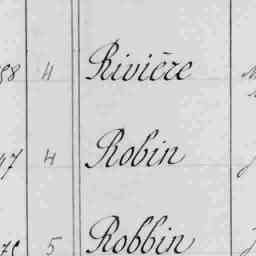 4 Rivière
47 4 Robin
5 Robbin